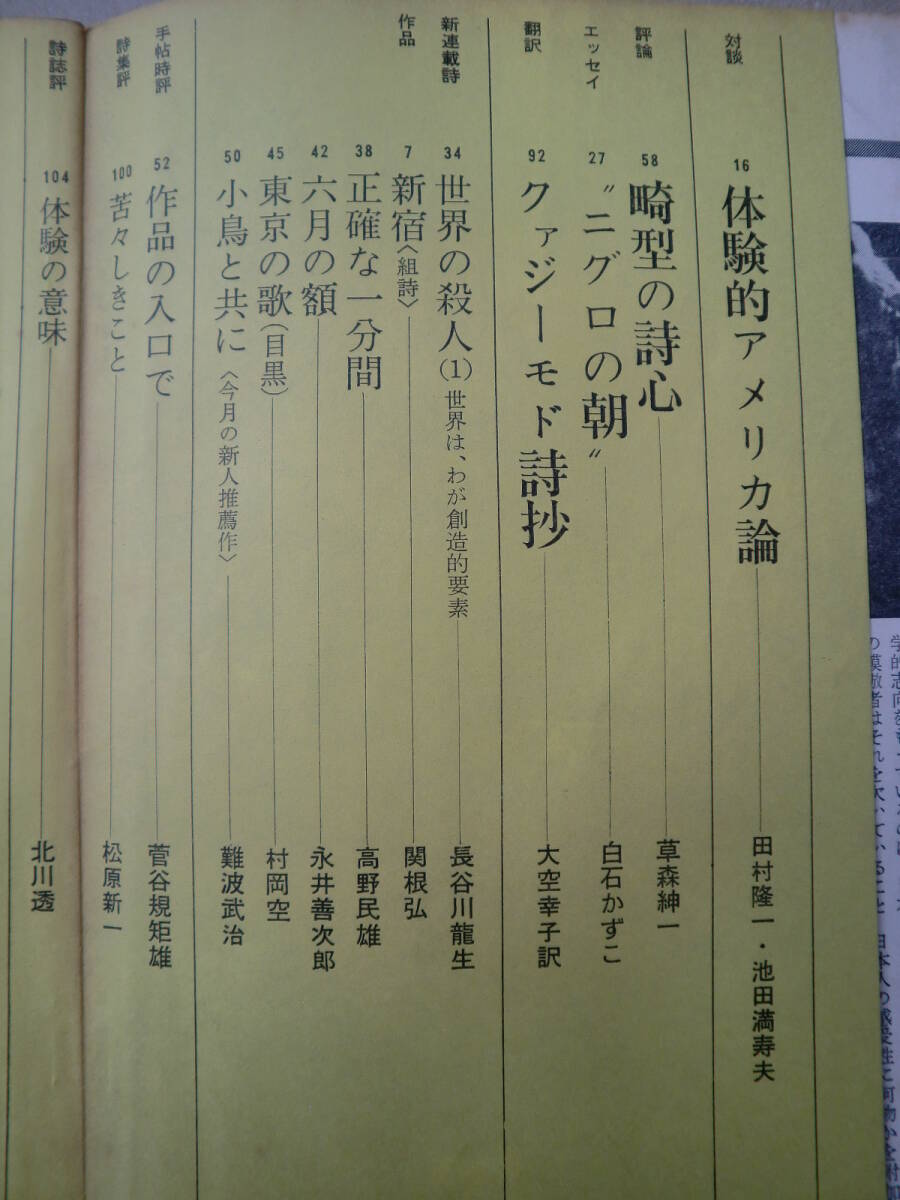 対談
16 体験的アメリカ論 田村隆一・池田満寿夫
評論
58 畸型の詩心 草森紳一
エッセイ
27 〝ニグロの朝〟 白石かずこ
翻訳
92 クァジーモド詩抄 大空幸子訳
新連載詩
34 世界の殺人(1) 世界は、わが創造的要素 長谷川龍生
作品
7 新宿〈組詩〉 関根弘
38 正確な一分間 高野民雄
42 六月の額 永井善次郎
45 東京の歌(目黒) 村岡空
50 小鳥と共に〈今月の新人推薦作〉 難波武治
手帖時評
52 作品の入口で 菅谷規矩雄
詩集評
100 苦々しきこと 松原新一
詩誌評
104 体験の意味 北川透